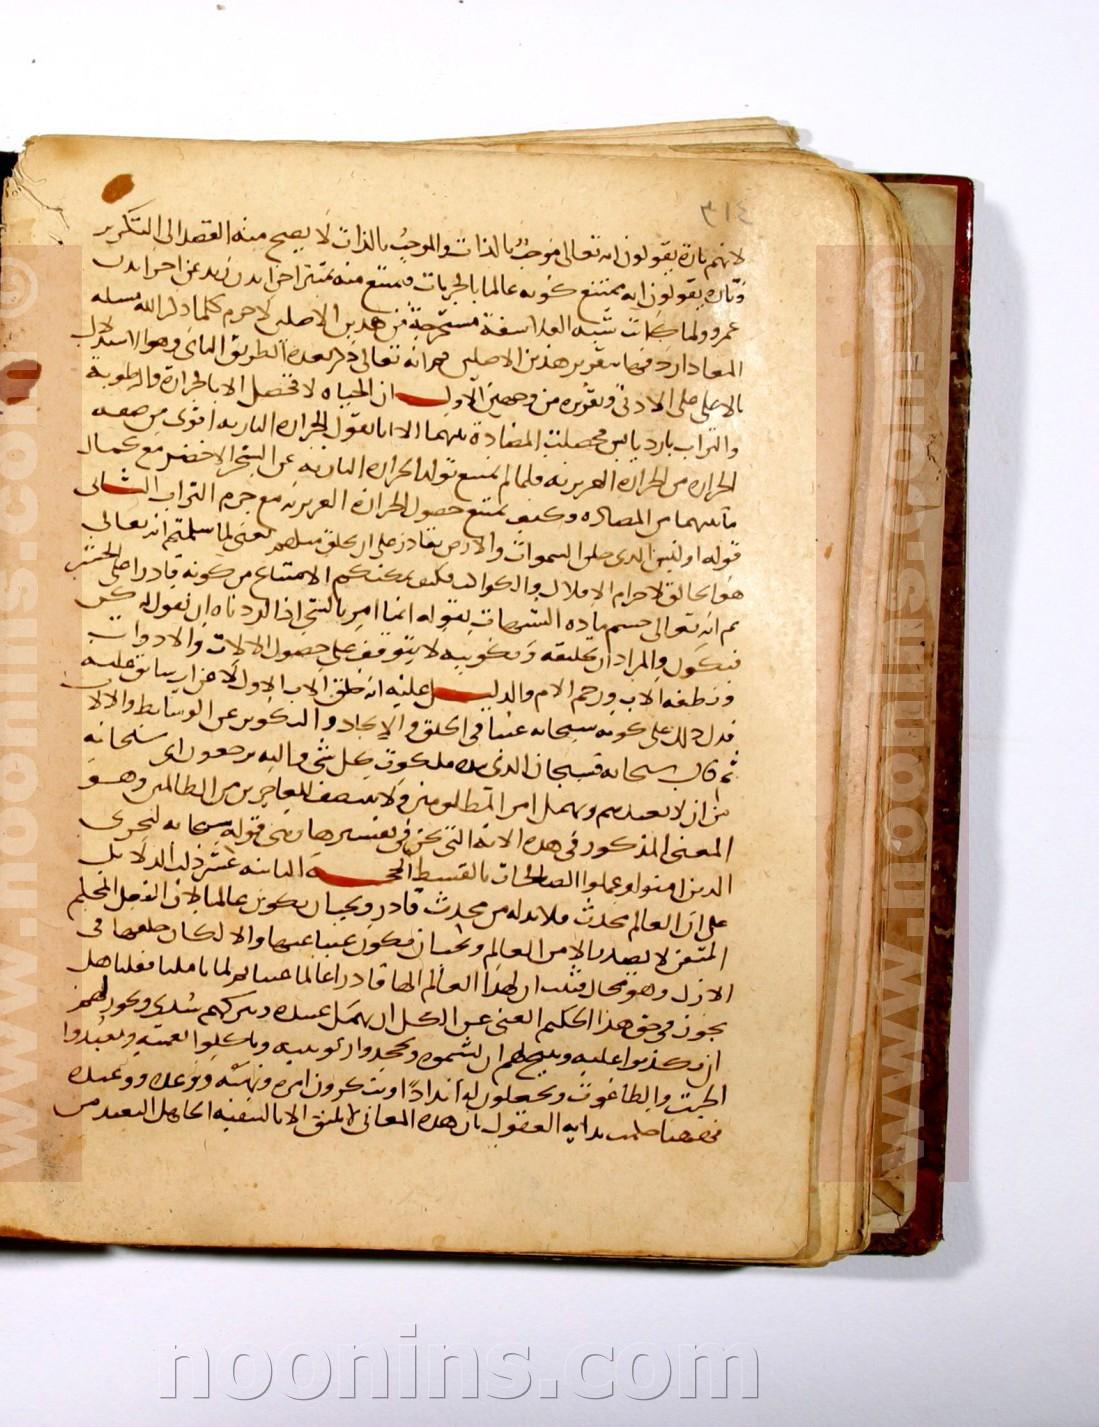 ٤١٣
لانهم تارة يقولون انه تعالى موجب بالذات والموجب بالذات لا يصح منه القصد الى التكرير
وتارة يقولون انه يمتنع كونه عالما بالجزيات فيمتنع منه تمييز اجزا بدن زيد عن اجزا بدن
عمرو ولما كانت شبه الفلاسفة مستخرجة من هذين الاصلين لا جرم كلما ذكر الله مسله
المعاد اردفها بتقرير هذين الاصلين ثم انه تعالى ذكر بعده الطريق الثاني وهو الاستدلال
بالاعلى على الادنى وتقريره من وجهين الاول ان الحياه لا تحصل الا بالحرارة والرطوبة
والتراب بارد يابس فحصلت المضادة بينهما الا انا نقول الحرارة النارية اقوى من صفه
الحرارة من الحرارة الغريزيه فلما لم يمتنع تولد الحرارة الناريه عن الشجر الاخضر مع كمال
ما بينهما من المضاده وكيف يمتنع حصول الحرارة الغريزيه مع جرم التراب الثاني
قوله اوليس الذي خلق السموات والارض بقادر على ان يخلق مثلهم بمعنى لما سلمتم انه تعالى
هو الخالق لاجرام الافلاك والكواكب فكيف يمكنكم الامتناع من كونه قادرا على الحشر
ثم انه تعالى حسم ماده الشبهات بقوله انما امرنا لشي اذا اردناه ان نقول له كن
فيكون والمراد ان تخليقه وتكوينه لا يتوقف على حصول الالات والادوات
ونطفه الاب ورحم الام والدليل عليه انه خلق الاب الاول لا عن اب سابق عليه
فدل ذلك على كونه سبحانه غنيا في الخلق والايجاد والتكوين عن الوسايط والالات
ثم قال سبحانه فسبحان الذي بيده ملكوت كل شي واليه ترجعون اي سبحانه
من ان لا يعيدهم ويهمل امر المظلومين ولا ينتصف للعاجزين من الظالمين وهو
المعنى المذكور في هذه الاية التي نحن في تفسيرها وهي قوله سبحانه ليجزي
الذين امنوا وعملوا الصالحات بالقسط الحجة الثانيه عشر دلت الدلايل
على ان العالم محدث فلا بد له من محدث قادر ويجب ان يكون عالما لان الفعل المحكم
المتقن لا يصدر الا من العالم ويجب ان يكون غنيا عنها والا لكان خلقها في
الازل وهو محال فثبت ان لهذا العالم الها قادرا عالما غنيا ثم لما تاملنا فقلنا هل
يجوز في حق هذا الحكيم الغني عن الكل ان يهمل عبيده ويتركهم سدى ويجوز لهم
ان يكذبوا عليه ويبيح لهم ان يشتموه ويجحدوا ربوبيته وياكلوا نعمته ويعبدوا
الجبت والطاغوت ويجعلون له اندادا وينكرون امره ونهيه ووعده ووعيده
فههنا حكمت بداية العقول بان هذه المعاني لا تليق الا بالسفيه الجاهل البعيد من